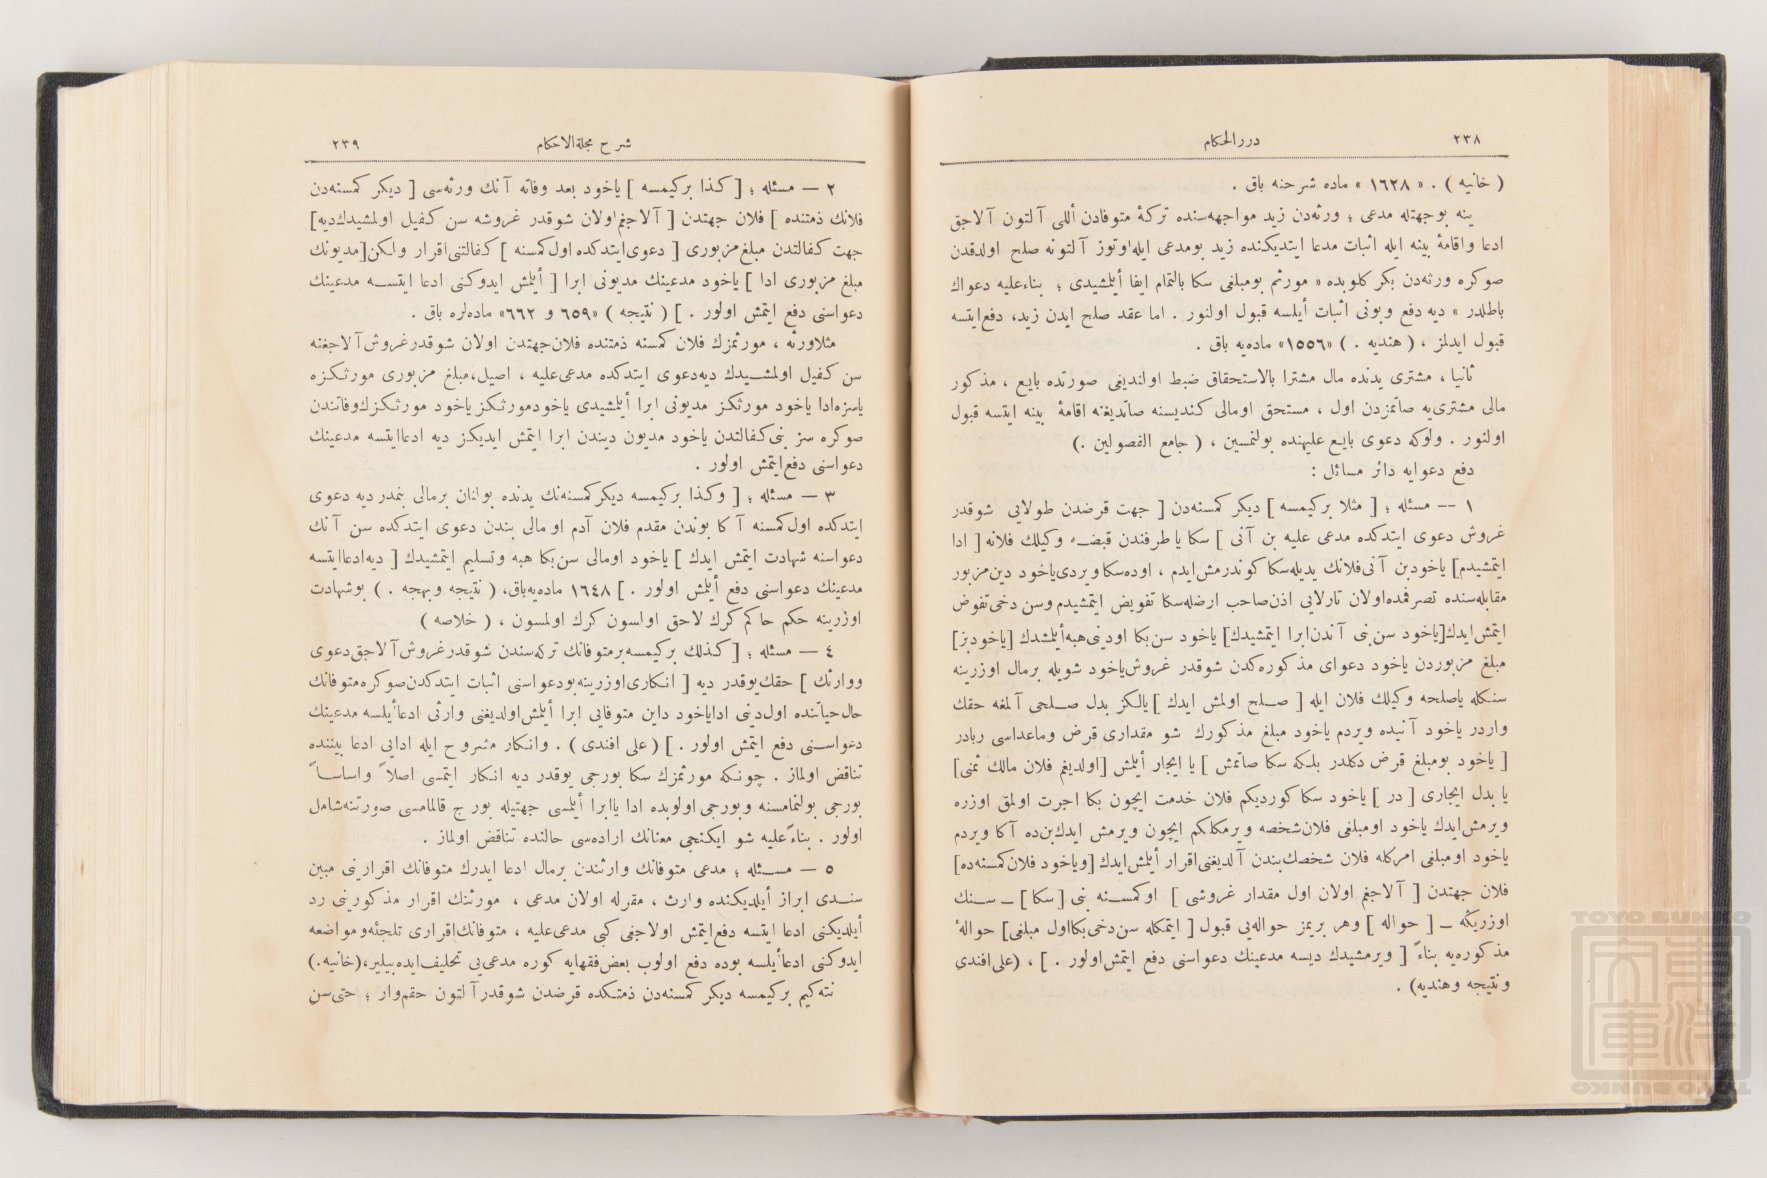 ٢٣٨
دررالحكام
( خانيه ) . « ١٦٢٨ » ماده شرحنه باق .
ينه بوجهتله مدعى ؛ ورثه‌دن زيد مواجهه‌سنده تركۀ متوفادن أللى آلتون آلاجق
ادعا واقامۀ بينه ايله اثبات مدعا ايتديكنده زيد بومدعى ايله اوتوز آلتونه صلح اولدقدن
صوكره ورثه‌دن بكر كلوبده « مورثم بومبلغى سكا بالتمام ايفا أيلمشيدى ؛ بناءعليه دعواك
باطلدر » ديه دفع وبونى اثبات أيلسه قبول اولنور . اما عقد صلح ايدن زيد، دفع ايتسه
قبول ايدلمز ، ( هنديه . ) «١٥٥٦» ماده‌يه باق .
ثانيا ، مشترى يدنده مال مشترا بالاستحقاق ضبط اولنديغى صورتده بايع ، مذكور
مالى مشترى‌يه صاتمزدن اول ، مستحق اومالى كنديسنه صاتديغنه اقامۀ بينه ايتسه قبول
اولنور . ولوكه دعوى بايع عليهنده بولنمسين ، ( جامع الفصولين .)
دفع دعوايه دائر مسائل :
١ — مسئله ؛ [ مثلا بركيمسه ] ديكر كمسنه‌دن [ جهت قرضدن طولايى شوقدر
غروش دعوى ايتدكده مدعى عليه بن آنى ] سكا يا طرفندن قبضه وكيلك فلانه [ ادا
ايتمشيدم] ياخودبن آنى‌فلانك يديله‌سكا كوندرمش‌ايدم ، اوده‌سكا ويردى‌ياخود دين‌مزبور
مقابله‌سنده تصرفمده‌اولان تارلايى اذن‌صاحب ارضله‌سكا تفويض ايتمشيدم وسن دخى‌تفوض
ايتمش‌ايدك[ياخود سن‌بنى آندن‌ابرا ايتمشيدك] ياخود سن‌بكا اودينى‌هبه‌أيلمشدك [ياخودبز]
مبلغ مزبوردن ياخود دعواى مذكوره‌كدن شوقدر غروش‌ياخود شويله برمال اوزرينه
سنكله ياصلحه وكيلك فلان ايله [ صلح اولمش ايدك ] يالكز بدل صلحى آلمغه حقك
واردر ياخود آنيده ويردم ياخود مبلغ مذكورك شو مقدارى قرض وماعداسى ربادر
[ ياخود بومبلغ قرض دكلدر بلكه سكا صاتمش ] يا ايجار أيلمش [اولديغم فلان مالك ثمنى]
يا بدل ايجارى [ در ] ياخود سكا كورديكم فلان خدمت ايچون بكا اجرت اولمق اوزره
ويرمش‌ايدك ياخود اومبلغى فلان‌شخصه ويرمكلكم ايچون ويرمش ايدك‌بن‌ده آكا ويردم
ياخود اومبلغى امركله فلان شخصك‌بندن آلديغنى‌اقرار أيلمش‌ايدك [وياخود فلان‌كمسنه‌ده]
فلان جهتدن [ آلاجغم اولان اول مقدار غروشى ] اوكمسنه بنى [ سكا ] ــ سنك
اوزريكه ــ [ حواله ] وهر بريمز حواله‌يى قبول [ ايتمكله سن‌دخى‌بكااول مبلغى] حوالۀ
مذكوره‌يه بناءً [ ويرمشيدك ديسه مدعينك دعواسنى دفع ايتمش‌اولور . ] ، (على‌افندى
ونتيجه وهنديه) .
شرح مجلةالاحكام
٢٣٩
٢ — مسئله ؛ [ كذا بركيمسه ] ياخود بعد وفاته آنك ورثه‌سى [ ديكر كمسنه‌دن
فلانك ذمتنده ] فلان جهتدن [ آلاجغم‌اولان شوقدر غروشه سن كفيل اولمشيدك‌ديه]
جهت كفالتدن مبلغ‌مزبورى [ دعوى‌ايتدكده اول‌كمسنه ] كفالتنى‌اقرار ولكن[مديونك
مبلغ مزبورى ادا ] ياخود مدعينك مديونى ابرا [ أيلمش ايدوكنى ادعا ايتسه مدعينك
دعواسنى دفع ايتمش اولور . ] ( نتيجه ) «٦٥٩ و ٦٦٢» ماده‌لره باق .
مثلاورثه ، مورثمزك فلان كمسنه ذمتنده فلان‌جهتدن اولان شوقدرغروش‌آلاجغنه
سن كفيل اولمشيدك ديه‌دعوى ايتدكده مدعى‌عليه ، اصيل،مبلغ مزبورى مورثكزه
ياسزه‌ادا ياخود مورثكز مديونى ابرا أيلمشيدى ياخودمورثكز ياخود مورثكزك‌وفاتندن
صوكره سز بنى‌كفالتدن ياخود مديون دينندن ابرا ايتمش ايديكز ديه ادعاايتسه مدعينك
دعواسنى دفع‌ايتمش اولور .
٣ — مسئله ؛ [ وكذا بركيمسه ديكركمسنه‌نك يدنده بولنان برمالى بنمدر ديه دعوى
ايتدكده اول‌كمسنه آكا بوندن مقدم فلان آدم اومالى بندن دعوى ايتدكده سن آنك
دعواسنه شهادت ايتمش ايدك ] ياخود اومالى سن‌بكا هبه وتسليم ايتمشيدك [ ديه‌ادعاايتسه
مدعينك دعواسنى دفع أيلمش اولور . ] ١٦٤٨ ماده‌يه‌باق، ( نتيجه وبهجه . ) بوشهادت
اوزرينه حكم حاكم كرك لاحق اولسون كرك اولمسون ، ( خلاصه )
٤ — مسئله ؛ [ كذلك بركيمسه‌برمتوفانك تركه‌سندن شوقدرغروش‌آلاجق‌دعوى
ووارثك ] حقك‌يوقدر ديه [ انكارى‌اوزرينه‌بودعواسنى اثبات ايتدكدن‌صوكره‌متوفانك
حال‌حياتنده اول‌دينى اداياخود داين متوفايى ابرا أيلمش‌اولديغنى وارثى ادعاأيلسه مدعينك
دعواسنى دفع ايتمش اولور . ] ( على افندى ) . وانكار مشروح ايله ادايى ادعا بيننده
تناقض اولماز . چونكه مورثمزك سكا بورجى يوقدر ديه انكار ايتمسى اصلاً واساساً
بورجى بولنمامسنه وبورجى اولوبده ادا ياابرا أيلمسى جهتيله بورج قالمامسى صورتنه‌شامل
اولور . بناءًعليه شو ايكنجى معنانك اراده‌سى حالنده تناقض اولماز .
٥ — مسئله ؛ مدعى متوفانك وارثندن برمال ادعا ايدرك متوفانك اقرارينى مبين
سندى ابراز أيلديكنده وارث ، مقرله اولان مدعى ، مورثنك اقرار مذكورينى رد
أيلديكنى ادعا ايتسه دفع‌ايتمش اولاجغى كبى مدعى‌عليه ، متوفانك‌اقرارى تلجئه‌ومواضعه
ايدوكنى ادعاأيلسه بوده دفع اولوب بعض‌فقهايه كوره مدعى‌يى تحليف‌ايده‌بيلير،(خانيه.)
نته‌كيم بركيمسه ديكر كمسنه‌دن ذمتكده قرضدن شوقدرآلتون حقم‌وار ؛ حتى‌سن
TOYO BUNKO